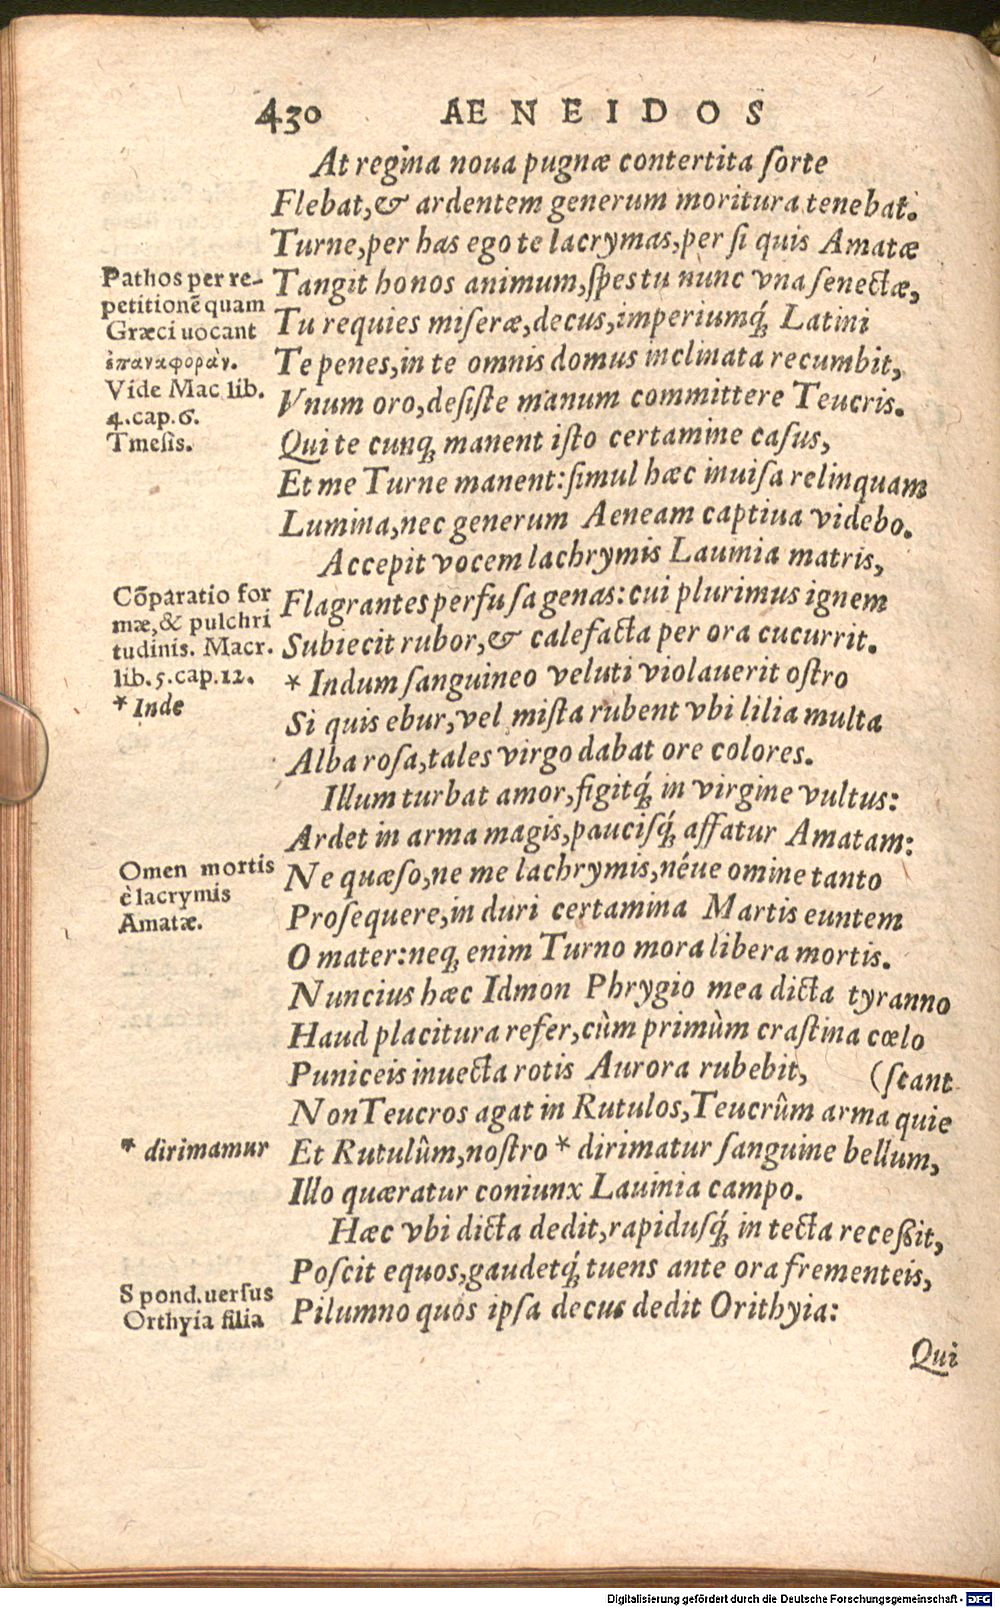 430 AENEIDOS
At regina noua pugnæ contertita ſorte
Flebat,& ardentem generum moritura tenebat.
Turne,per has ego te lacrymas,per ſi quis Amatæ
Pathos per re-
Tangit honos animum,ſpes tu nunc vna ſenectæ,
petitionē quam
Tu requies miſeræ,decus,imperiumq́; Latini
Græci uocant
ἐπαναφοράν.
Te penes,in te omnis domus inclinata recumbit,
Vide Mac lib.
Vnum oro,deſiſte manum committere Teucris.
4.cap.6.
Tmesis.
Qui te cunq; manent iſto certamine caſus,
Et me Turne manent:ſimul hæc inuiſa relinquam
Lumina,nec generum Aeneam captiua videbo.
Accepit vocem lachrymis Lauinia matris,
Cōparatio for
Flagrantes perfuſa genas:cui plurimus ignem
mæ,& pulchri
Subiecit rubor,& calefacta per ora cucurrit.
tudinis. Macr.
lib.5.cap.12.
* Indum ſanguineo veluti violauerit oſtro
* Inde
Si quis ebur,vel miſta rubent vbi lilia multa
Alba roſa,tales virgo dabat ore colores.
Illum turbat amor,figitq́; in virgine vultus:
Ardet in arma magis,pauciſq́; affatur Amatam:
Omen mortis
Ne quæſo,ne me lachrymis,néue omine tanto
è lacrymis
Amatæ.
Proſequere,in duri certamina Martis euntem
O mater:neq; enim Turno mora libera mortis.
Nuncius hæc Idmon Phrygio mea dicta tyranno
Haud placitura refer,cùm primùm craſtina cœlo
Puniceis inuecta rotis Aurora rubebit, (ſcant
Non Teucros agat in Rutulos,Teucrûm arma quie
* dirimamur
Et Rutulûm,noſtro * dirimatur ſanguine bellum,
Illo quæratur coniunx Lauinia campo.
Hæc vbi dicta dedit,rapiduſq́; in tecta receßit,
Poſcit equos,gaudetq́; tuens ante ora frementeis,
Spond.uerſus
Orthyia filia
Pilumno quos ipſa decus dedit Orithyia:
Qui
Digitalisierung gefördert durch die Deutsche Forschungsgemeinschaft - DFG